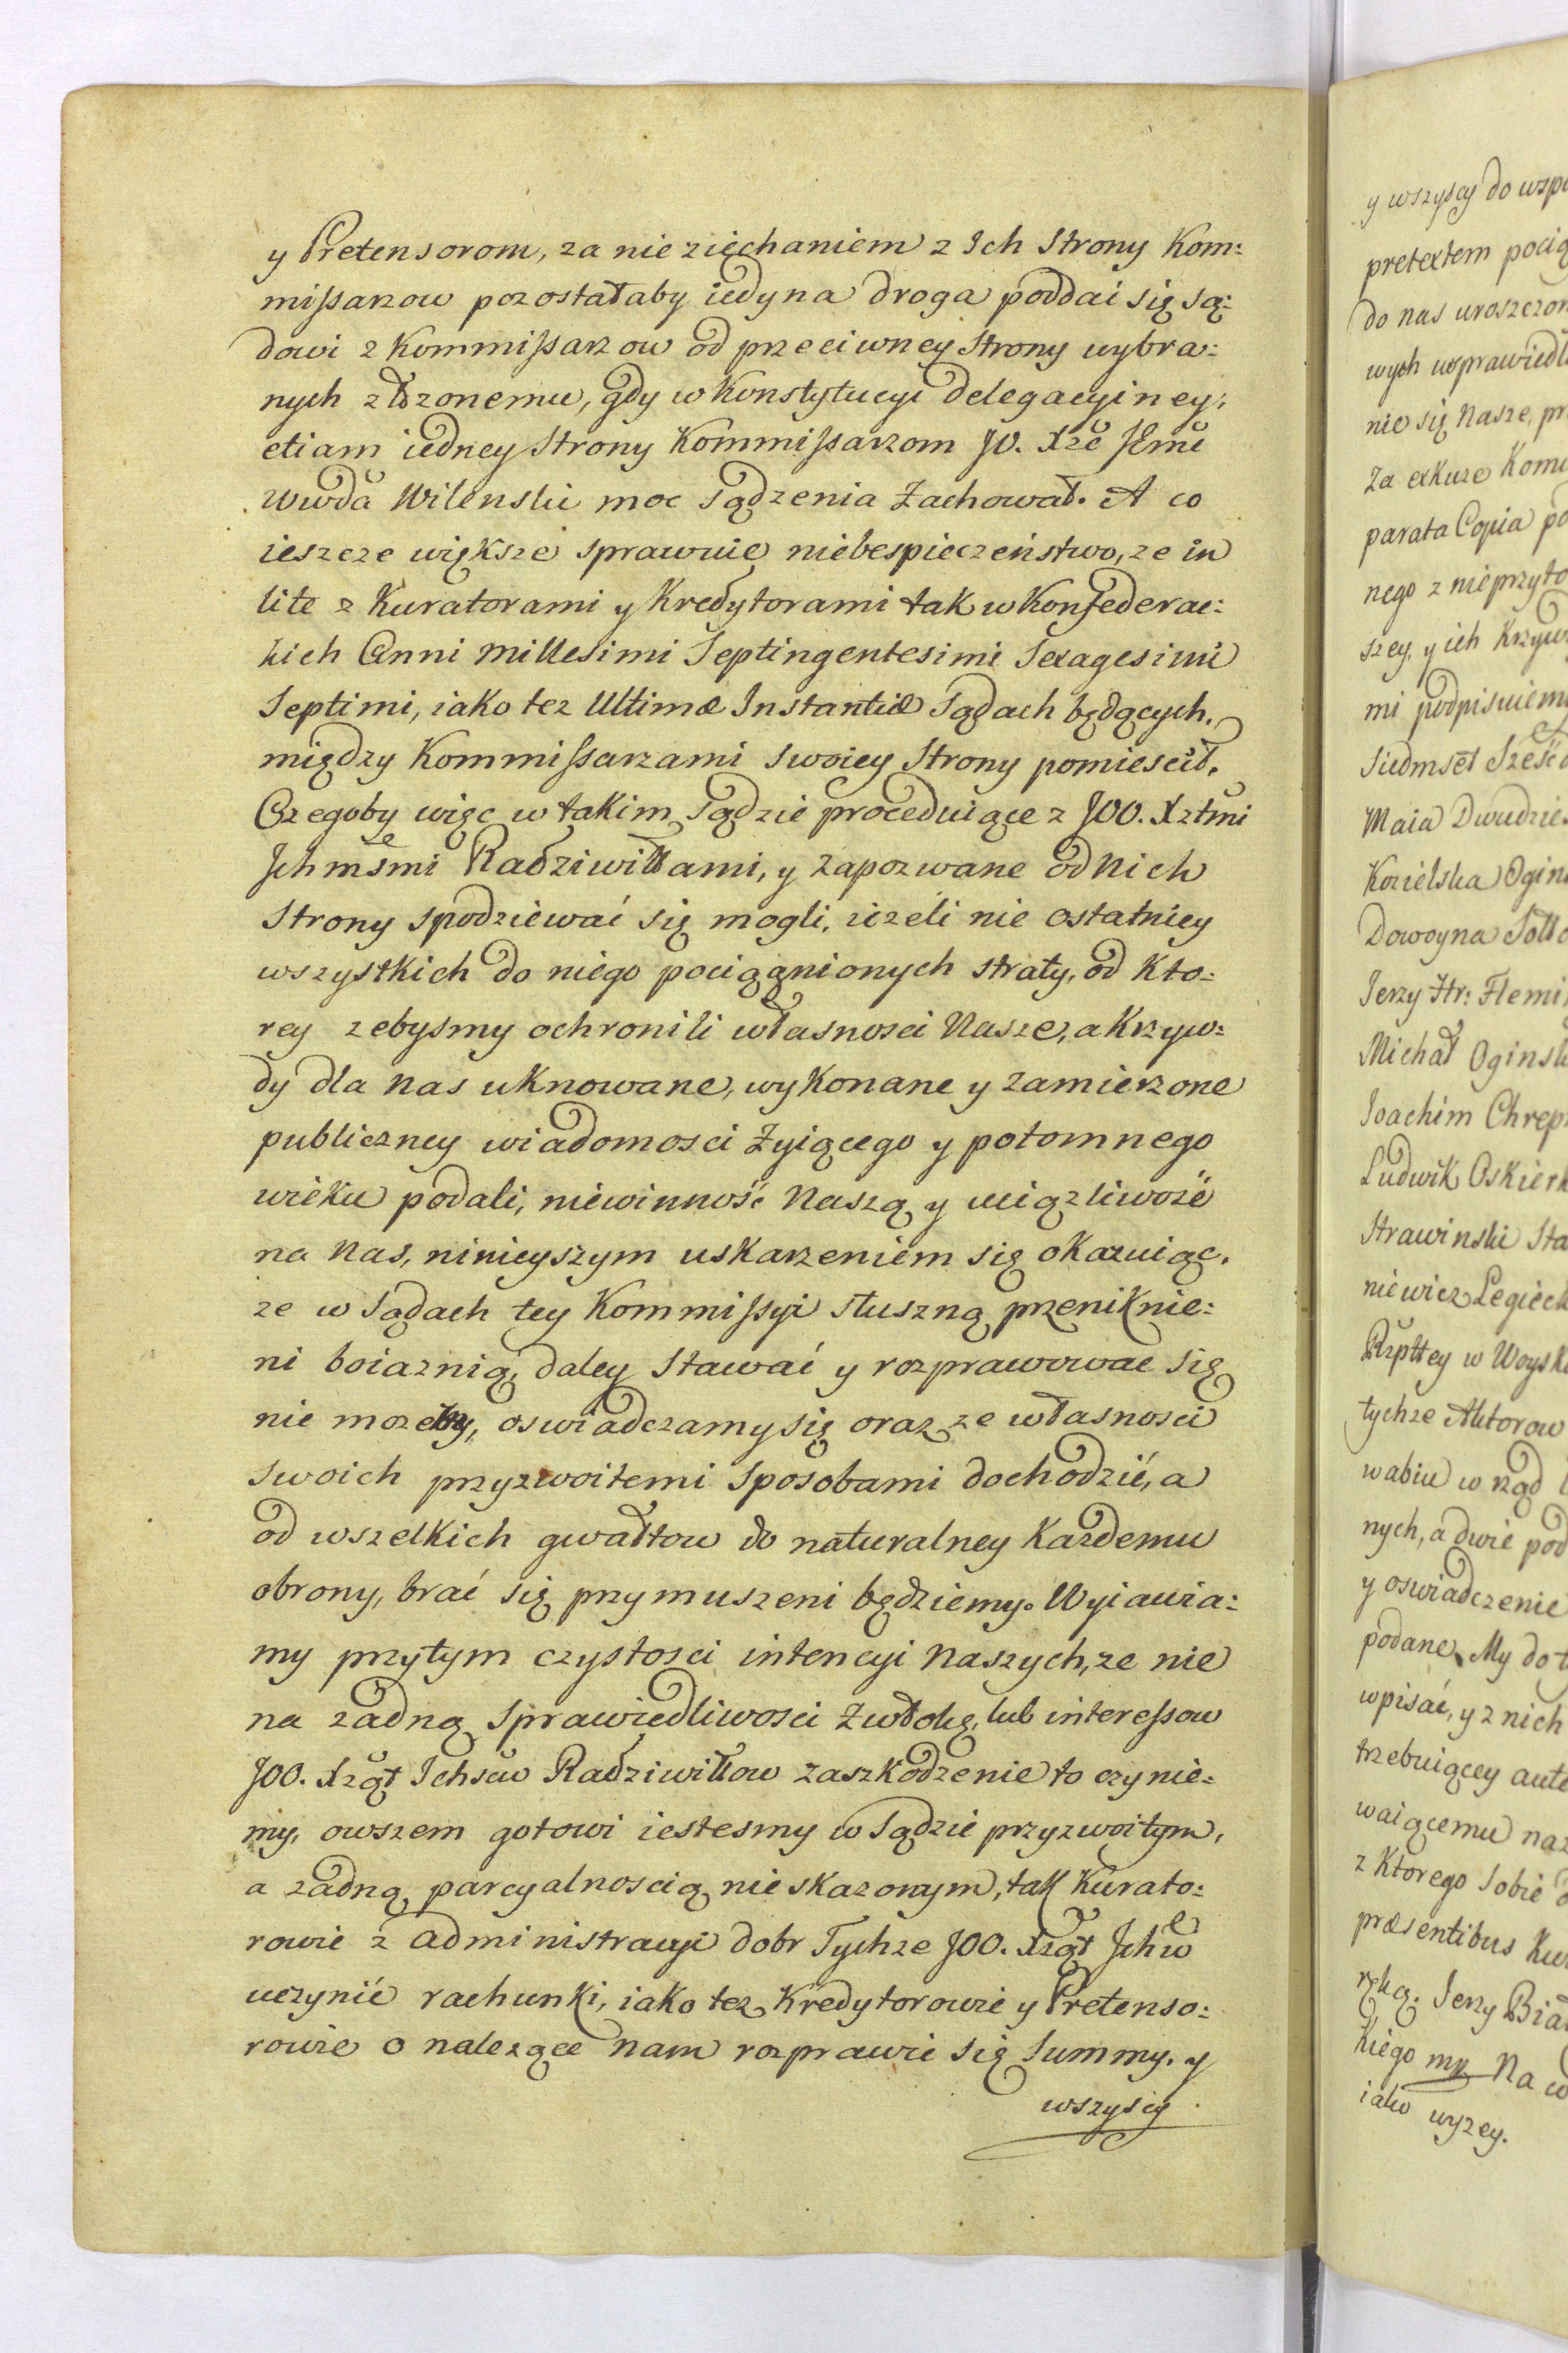 y Pretensorom, za nie ziechaniem z Ich Strony Kom:
mißarzow pozostałaby iedyna droga poddać się są:
dowi z Kommißarzow od przeciwney Strony wybra:
nych złozonemu, gdy w Konstytucyi delegacyiney,
etiam iedney Strony Kommißarzom JO. Xże Jmć
Wwda Wilenski moc sądzenia Zachował. A co
ieszcze większe sprawuie niebespieczeństwo, ze in
lite z Kuratorami y Kredytorami tak w Konfederac:
kich Anni Millesimi Septingentesimi Sexagesimi
Septimi, iako tez Ultimæ Instantiæ Sądach będących,
między Kommißarzami swoiey Strony pomieścił.
Czegoby więc w takim Sądzie proceduiące z JOO. Xztmi
Ichmśmi Radziwiłłami, y zapozwane od Nich
Strony spodziewać się mogli, ieżeli nie ostatniey
wszystkich do niego pociągnionych straty, od kto:
rey zebysmy ochronili własnosci Nasze, a Krzyw:
dy dla nas uknowane, wykonane y zamierzone
publiczney wiadomosci Zyiącego y potomnego
wieku podali, niewinność Naszą y uciązliwość
na Nas, ninieyszym uskarzeniem się okazuiąc.
ze w Sądach tey Kommißyi słuszną przeniknie:
ni boiaznią, daley Stawać y rozprawować się
nie możemy, oswiadczamy się oraz ze własnosci
swoich przyzwoitemi sposobami dochodzić, a
od wszelkich gwałtow do naturalney Kazdemu
obrony, brać się przymuszeni będziemy. Wyiawia:
my przytym czystosci intencyi Naszych, ze nie
na zadną Sprawiedliwosci zwłokę, lub intereßow
JOO. Xząt Ichscw Radziwiłłow zaszkodzenie to czynie:
my, owszem gotowi iestesmy w Sądzie przyzwoitym,
a zadną parcyalnoscią nieskazonym, tak Kurato:
rowie z administracyi dobr Tychze JOO. Xząt Ichw
uczynić rachunki, iako tez Kredytorowie y Pretenso:
rowie o nalezące Nam rozprawić się Summy. y
wszyscy
y wszyscy do
pretextem
do nas
wych
nie się Nasze,
Za exkuze
parata Copia
nego z
szey, y ich
mi
Siedmset
Maia
Kozielska
Dowoyna
Jerzy Hr:
Michał
Joachim
Ludwik
Strawinski
niewicz
Rzpltey w
tychze Aktorow
wabiu w rząd
nych, a dwie
y oswiadczenie
podane. My do
wpisać, y z nich
trzebuiącey
waiącemu
z Ktorego sobie
præsentibus
ręką. Jerzy
kiego mp Na
iako wyzey.